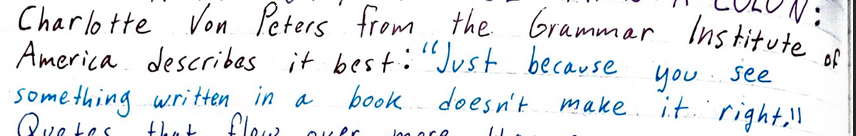 COLON:
Charlotte Von Peters from the Grammar Institute of
America describes it best: "Just because you see
something written in a book doesn't make it right."
Quotes that flow over more